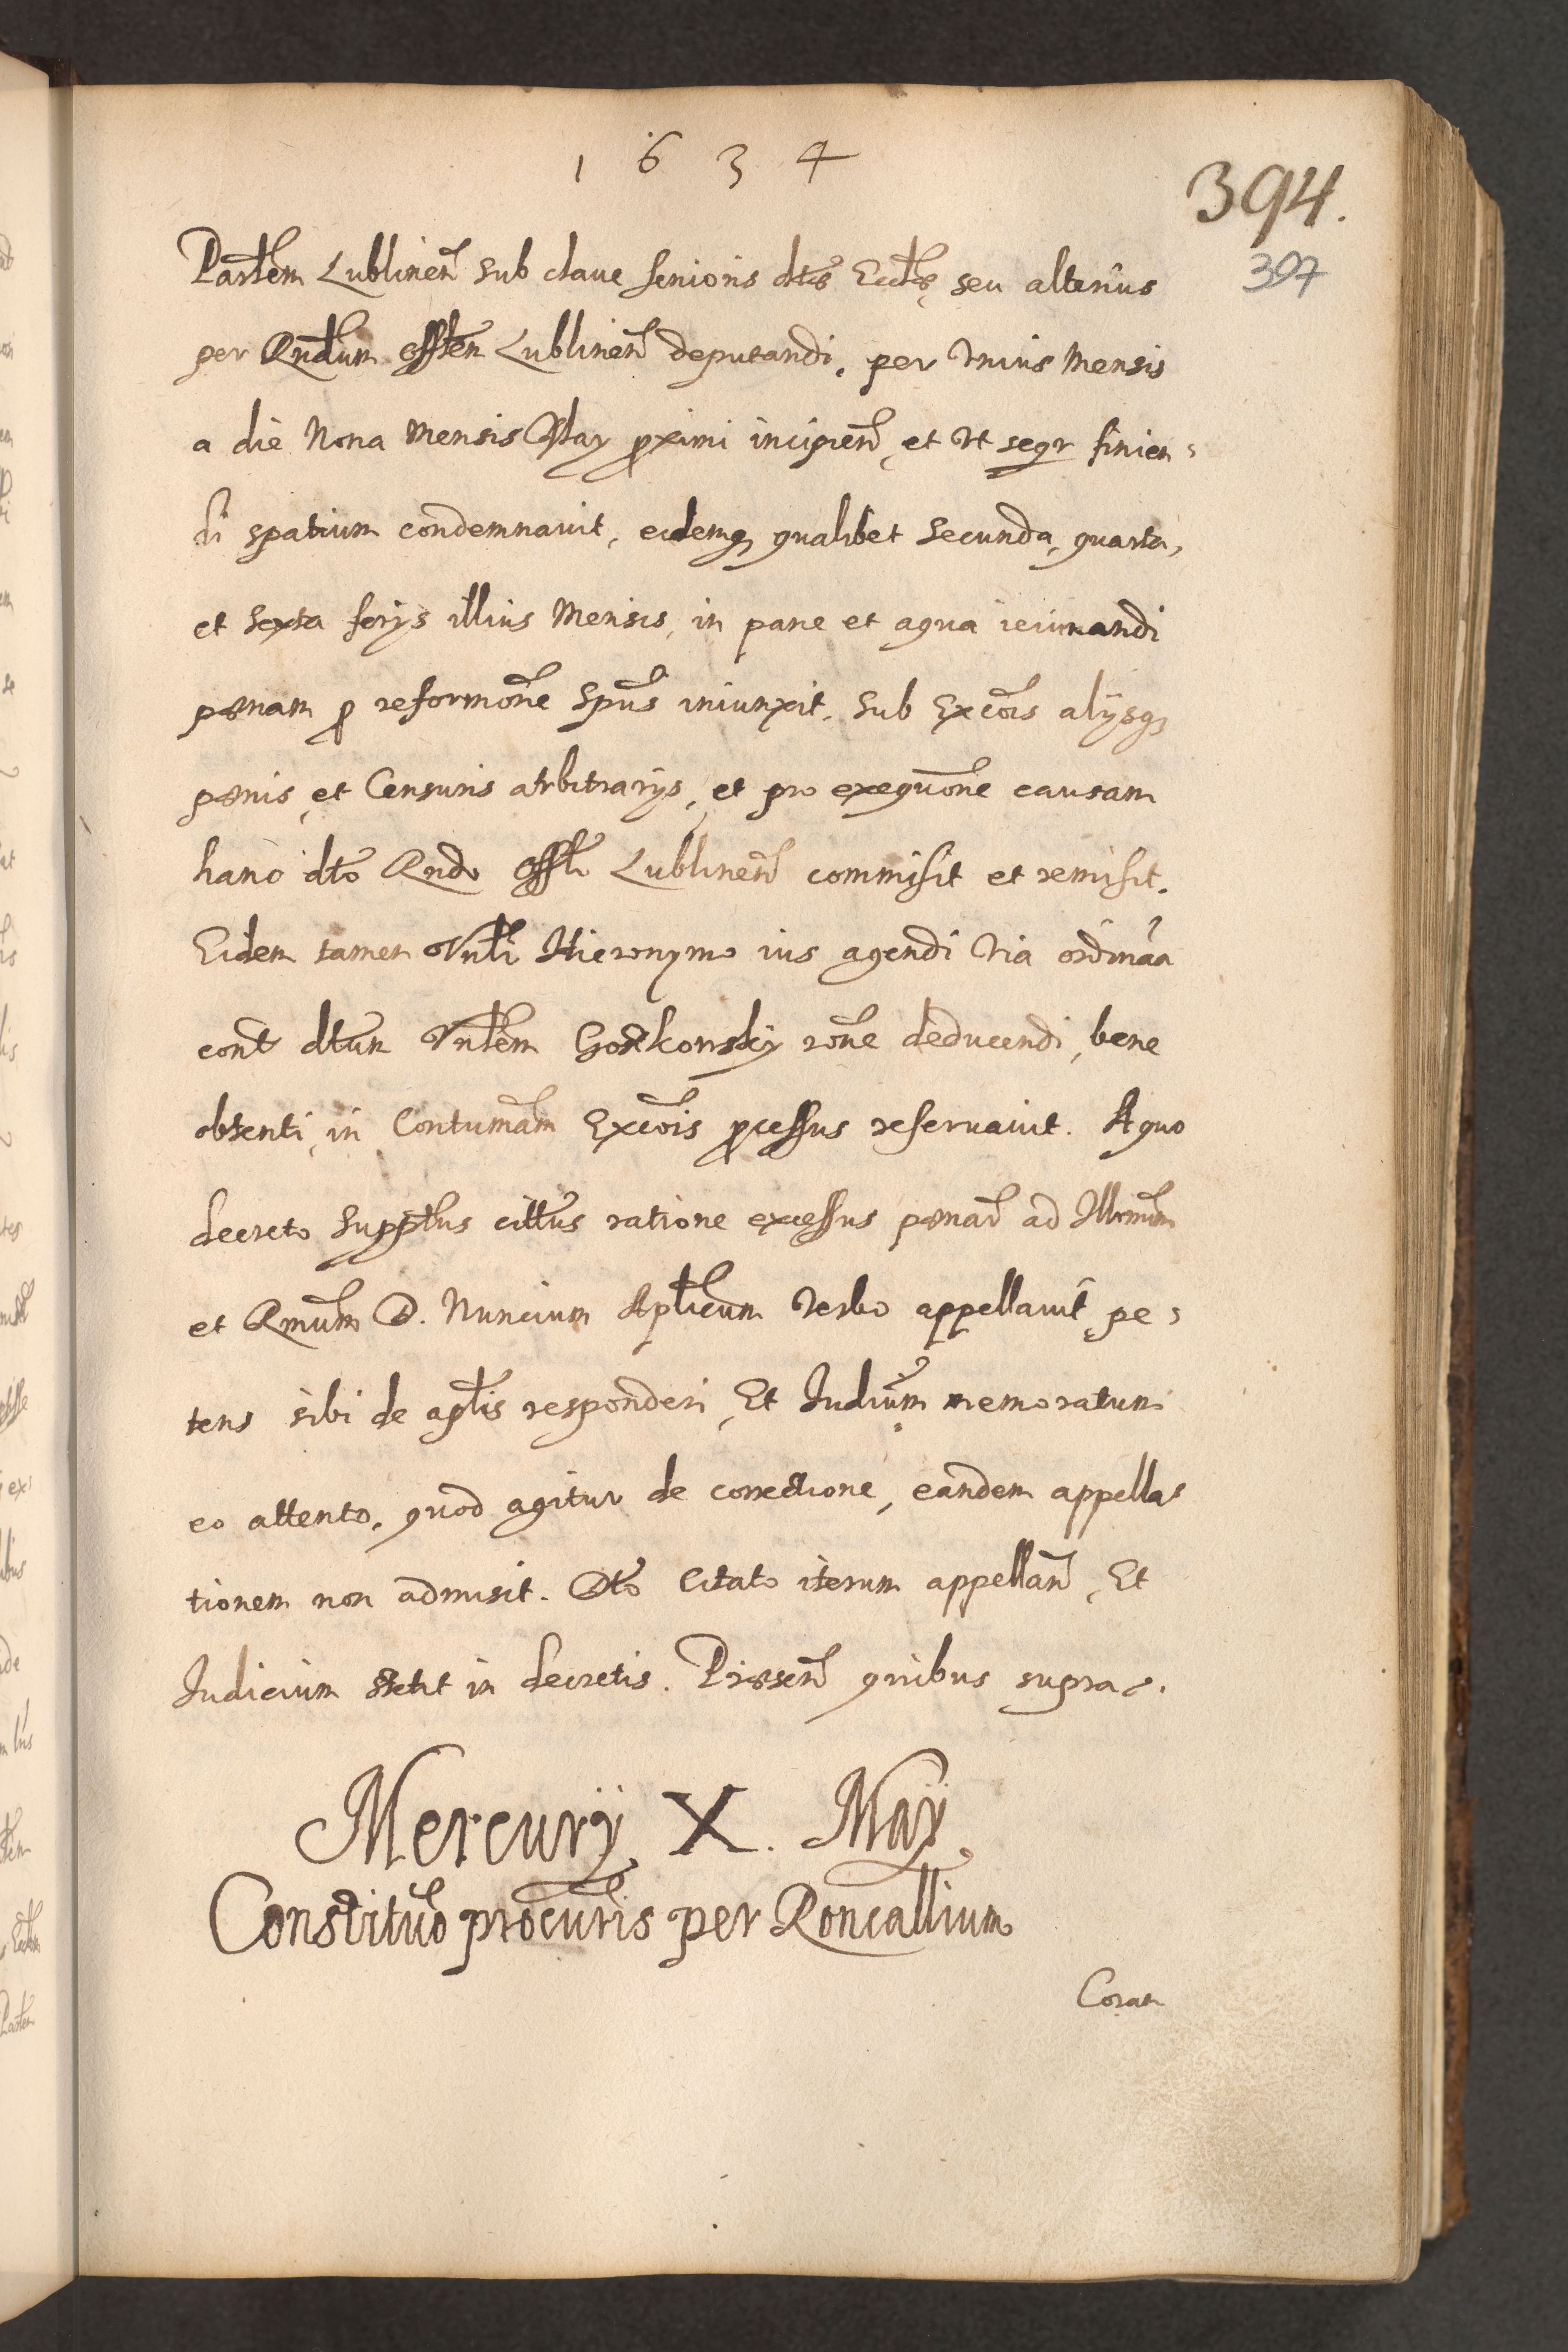 1634
394.
397
Partem Lublinen̄ sub claue senioris dtæ Ecclæ, seu alterius
per Rndum offlem Lublinen̄ deputandi, per Vnius Mensis
a die Nona Mensis May pximi incipien̄, et Vt seqr finien=
di spatium condemnauit, eidemq qualibet Secunda, quarta,
et Sexta ferijs illius Mensis, in pane et aqua ieiunandi
pœnam p reformōne Spūs iniunxit, Sub Excōis alijsq
pœnis, et Censuris arbitrarijs, et pro exequōne causam
hanc dto Rndo offli Lublinen̄ commisit et remisit.
Eidem tamen Vnbli Hieronymo ius agendi Via ordināa
cont dtum Vnblem Gorzkowsky rōne deducendi, bene
obtenti, in Contumām Excōis pcessus reseruauit. A quo
decreto Supptus cittus ratione excessus pœnar̄ ad Illrmum
et Rmum D. Nuncium Aplicum Verbo appellauit, pe=
tens sibi de aplis responderi, Et Judium memoratum
eo attento, quod agitur de correctione, eandem appella=
tionem non admisit. Dto Citato iterum appellan̄, Et
Judicium stetit in decretis. Præsen̄ quibus supra.
Mercurij X. Maij
Constituo procuris per Roncallium
Coram